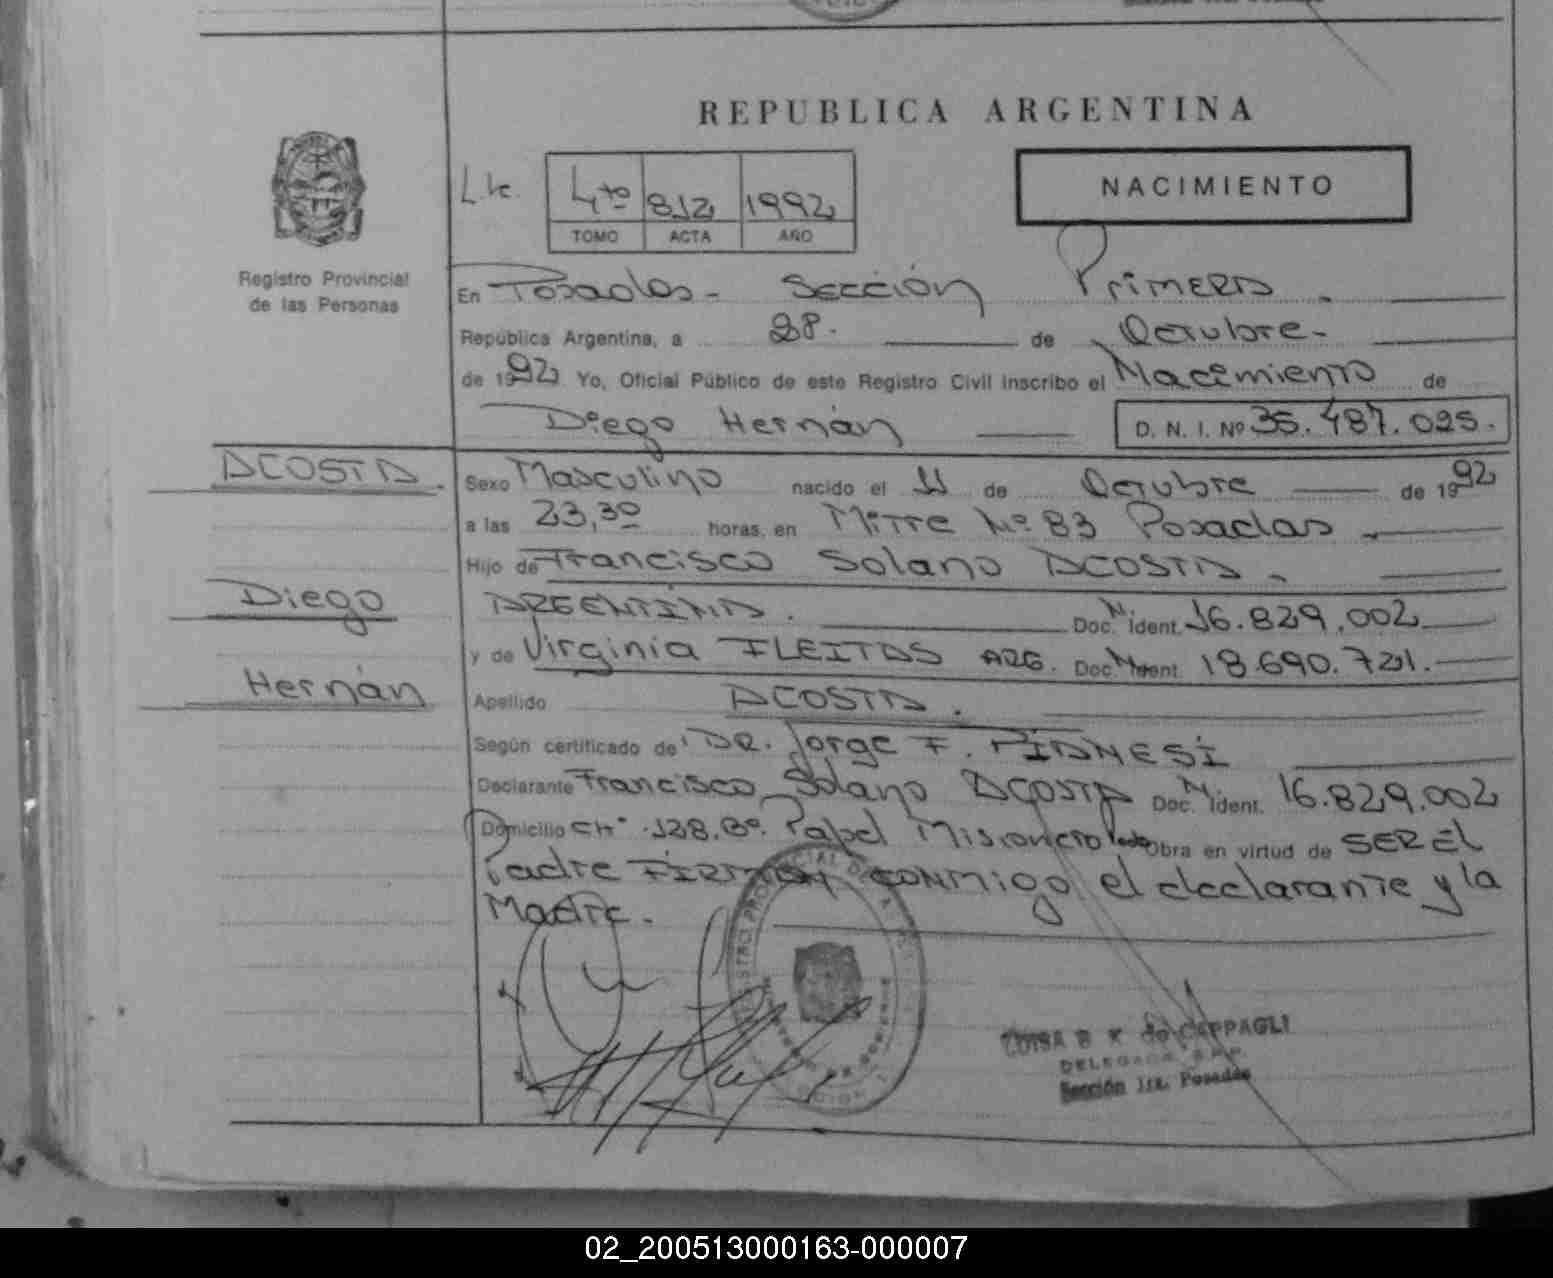 REPUBLICA ARGENTINA
4to 812 1992
TOMO ACTA AÑO
NACIMIENTO
Registro Provincial
de las Personas
En Posadas - Sección Primera
República Argentina, a 28. de Octubre-
de 1992 Yo, Oficial Público de este Registro Civil inscribo el Nacimiento de
Diego Hernán D. N. I. Nº 35.487.025.
ACOSTA. Sexo Masculino nacido el 11 de Octubre de 1992
a las 23,30 horas, en Mitre Nº 83 Posadas
Hijo de Francisco Solano ACOSTA -
Diego ARGENTINA. Doc. Ident. 16.829.002
y de Virginia FLEITAS ARG. Doc. Ident. 18.690.721.
Hernán Apellido ACOSTA.
Según certificado de DR. Jorge F. PIANESI
Declarante Francisco Solano ACOSTA Doc. Ident. 16.829.002
Domicilio CH. 128.Bº. Papel Misionero Obra en virtud de SER EL
Padre FIRMAN CONMIGO el declarante y la
Madre.
LUISA B K de CAPPAGLI
DELEGADA
Sección 1ra. Posadas
02_200513000163-000007